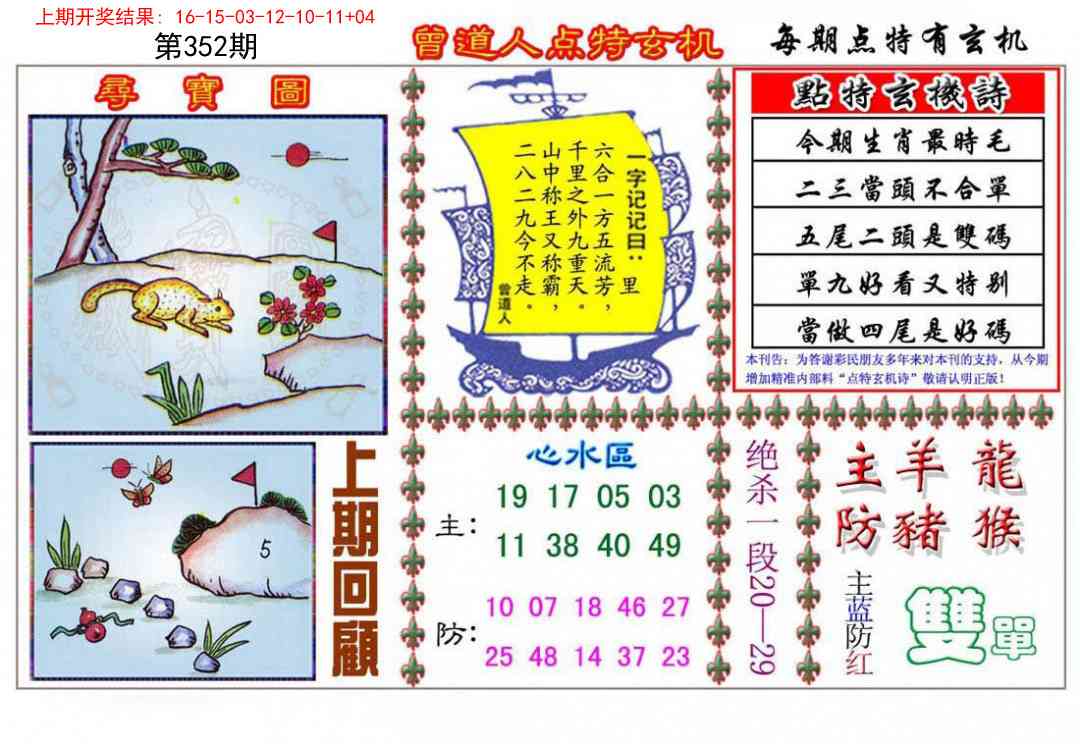 上期开奖结果：16-15-03-12-10-11+04
第352期
曾道人点特玄机
每期点特有玄机
尋寶圖
一字记记曰：里
六合一方五流芳，
千里之外九重天。
山中称王又称霸，
二八二九今不走。
曾道人
點特玄機詩
今期生肖最時毛
二三當頭不合單
五尾二頭是雙碼
單九好看又特别
當做四尾是好碼
本刊告：为答谢彩民朋友多年来对本刊的支持，从今期
增加精准内部料“点特玄机诗”敬请认明正版！
5
上期回顧
心水區
主：
19 17 05 03
11 38 40 49
防：
10 07 18 46 27
25 48 14 37 23
绝杀一段20—29
主羊龍
防豬猴
主蓝防红
雙單